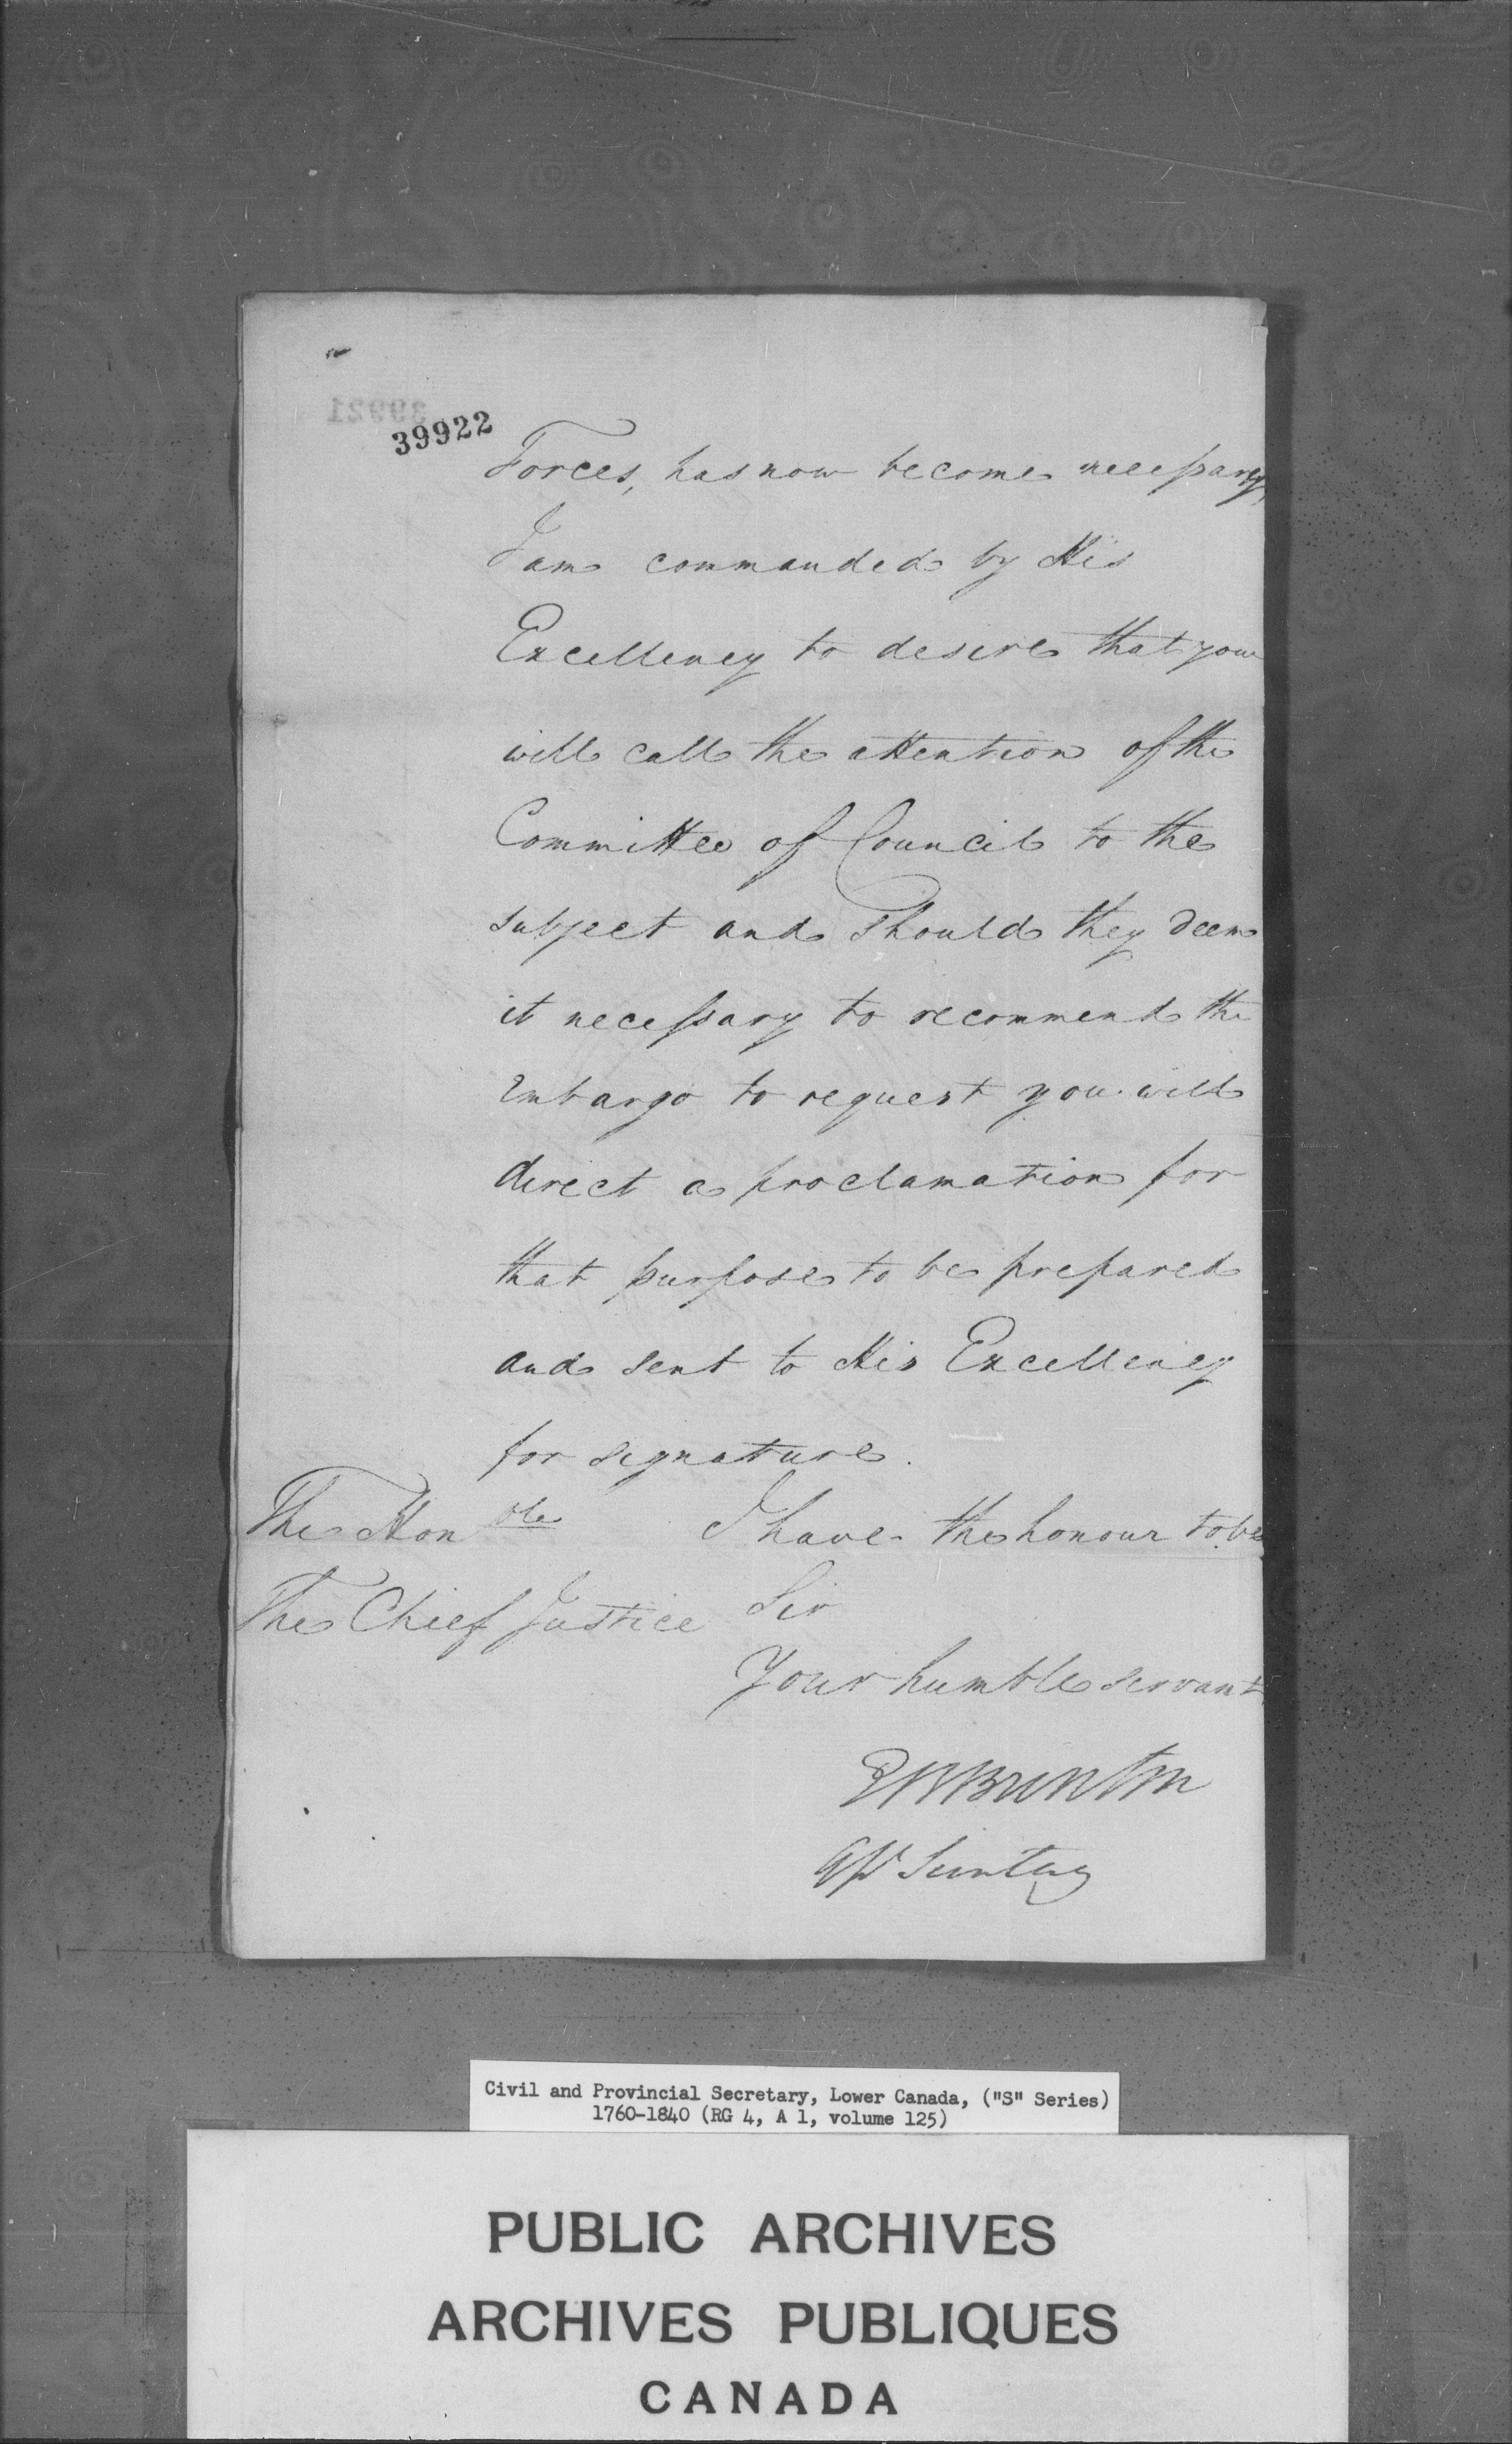 39921
39922
Forces, has now become necessary,
I am commanded by His
Excellency to desire that you
will call the attention of the
Committee of Council to the
subject and should they deem
it necessary to recommend the
Embargo to request you will
direct a proclamation for
that purpose to be prepared
and sent to His Excellency
for signature.
I have the honour to be
Sir
Your humble servant
E B Brenton
The Honble
The Chief Justice
Civil and Provincial Secretary, Lower Canada, ("S" Series)
1760-1840 (RG 4, A 1, volume 125)
PUBLIC ARCHIVES
ARCHIVES PUBLIQUES
CANADA